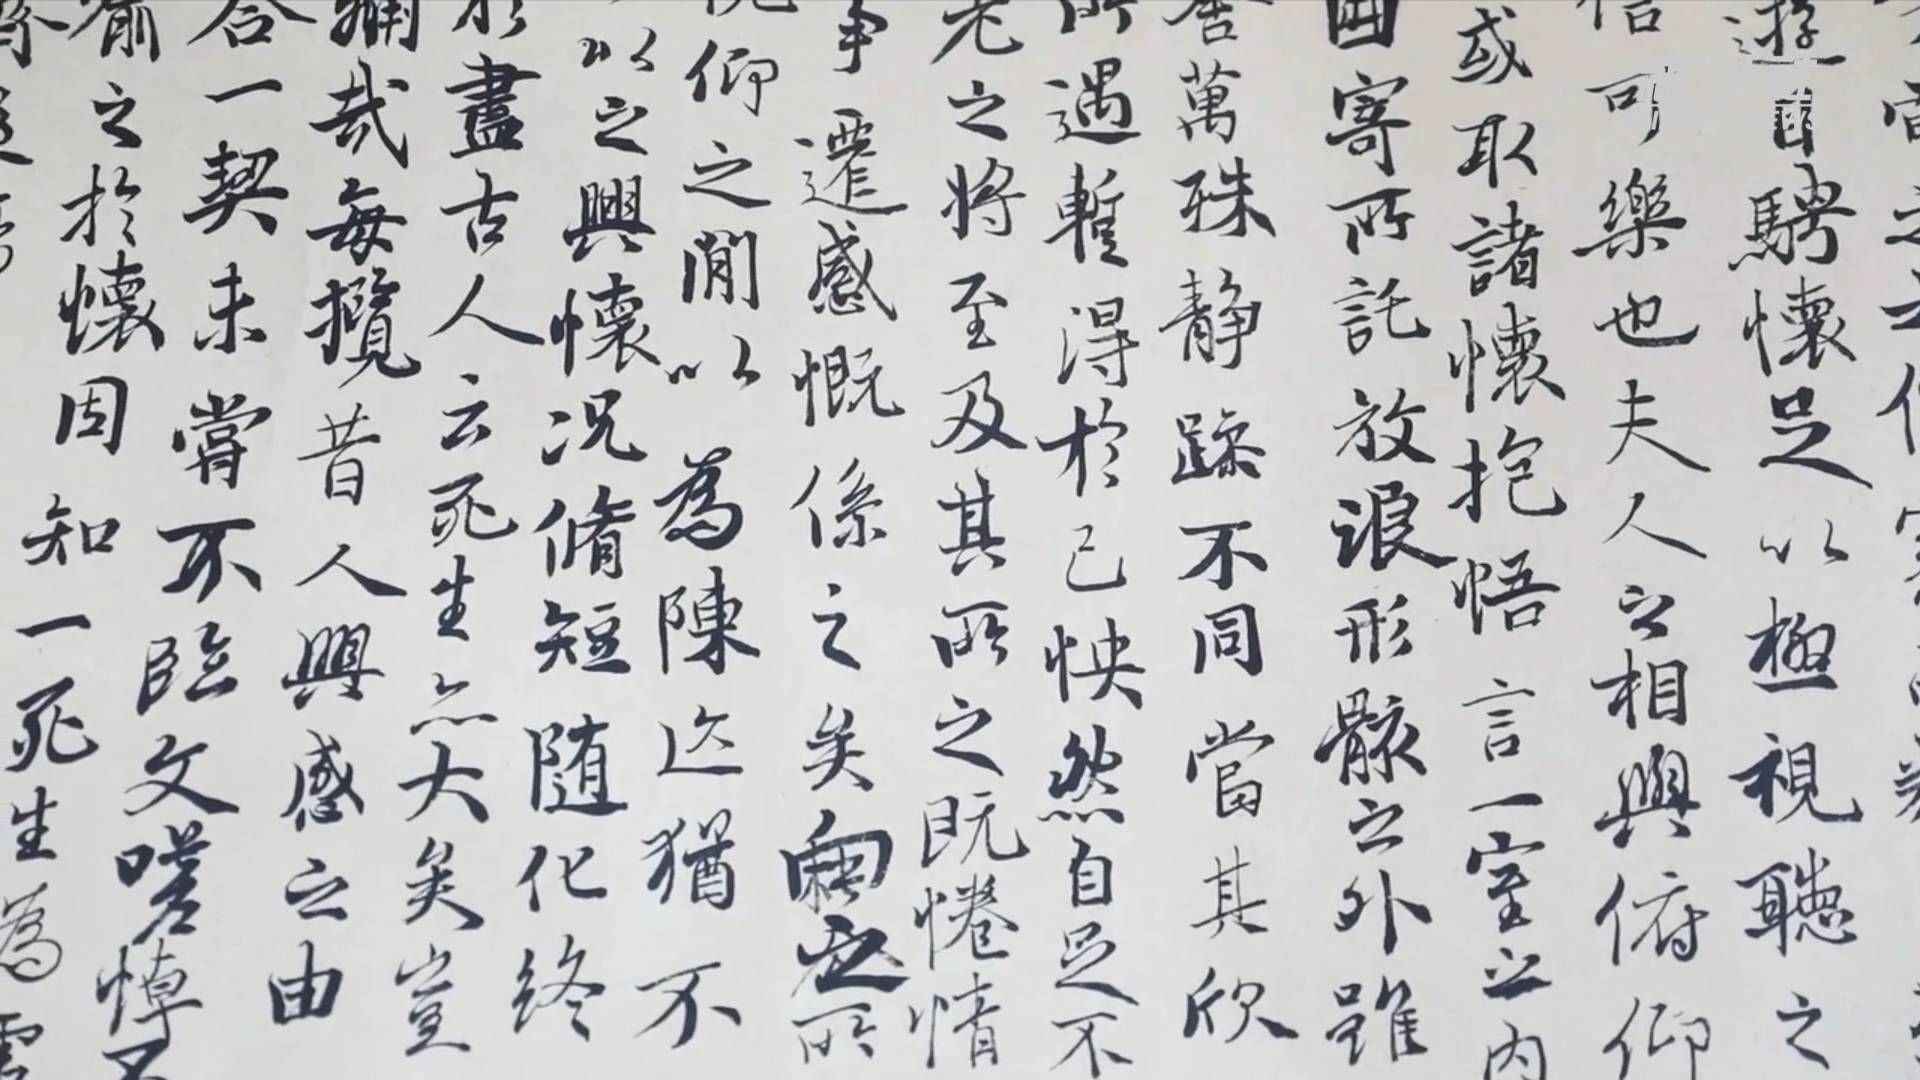 遊目騁懷足以極視聽之
信可樂也夫人之相與俯仰
或取諸懷抱悟言一室之内
因寄所託放浪形骸之外雖
舍萬殊静躁不同當其欣
所遇暫得於己怏然自足不
老之將至及其所之既惓情
事遷感慨係之矣向之所
俛仰之閒以為陳迹猶不
以之興懷況脩短随化終
於盡古人云死生亦大矣豈
痛哉每攬昔人興感之由
合一契未嘗不臨文嗟悼不
喻之於懷固知一死生為虛